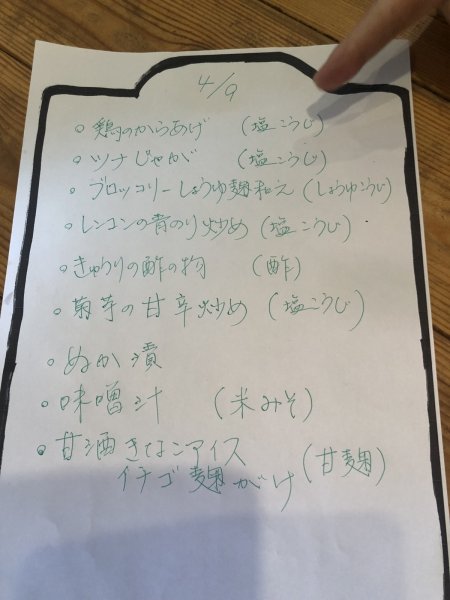 4/9
○ 鶏のからあげ (塩こうじ)
○ ツナじゃが (塩こうじ)
○ ブロッコリーしょうゆ麹和え (しょうゆこうじ)
○ レンコンの青のり炒め (塩こうじ)
○ きゅうりの酢の物 (酢)
○ 菊芋の甘辛炒め (塩こうじ)
○ ぬか漬
○ 味噌汁 (米みそ)
○ 甘酒きなこアイス
イチゴ麹がけ (甘麹)